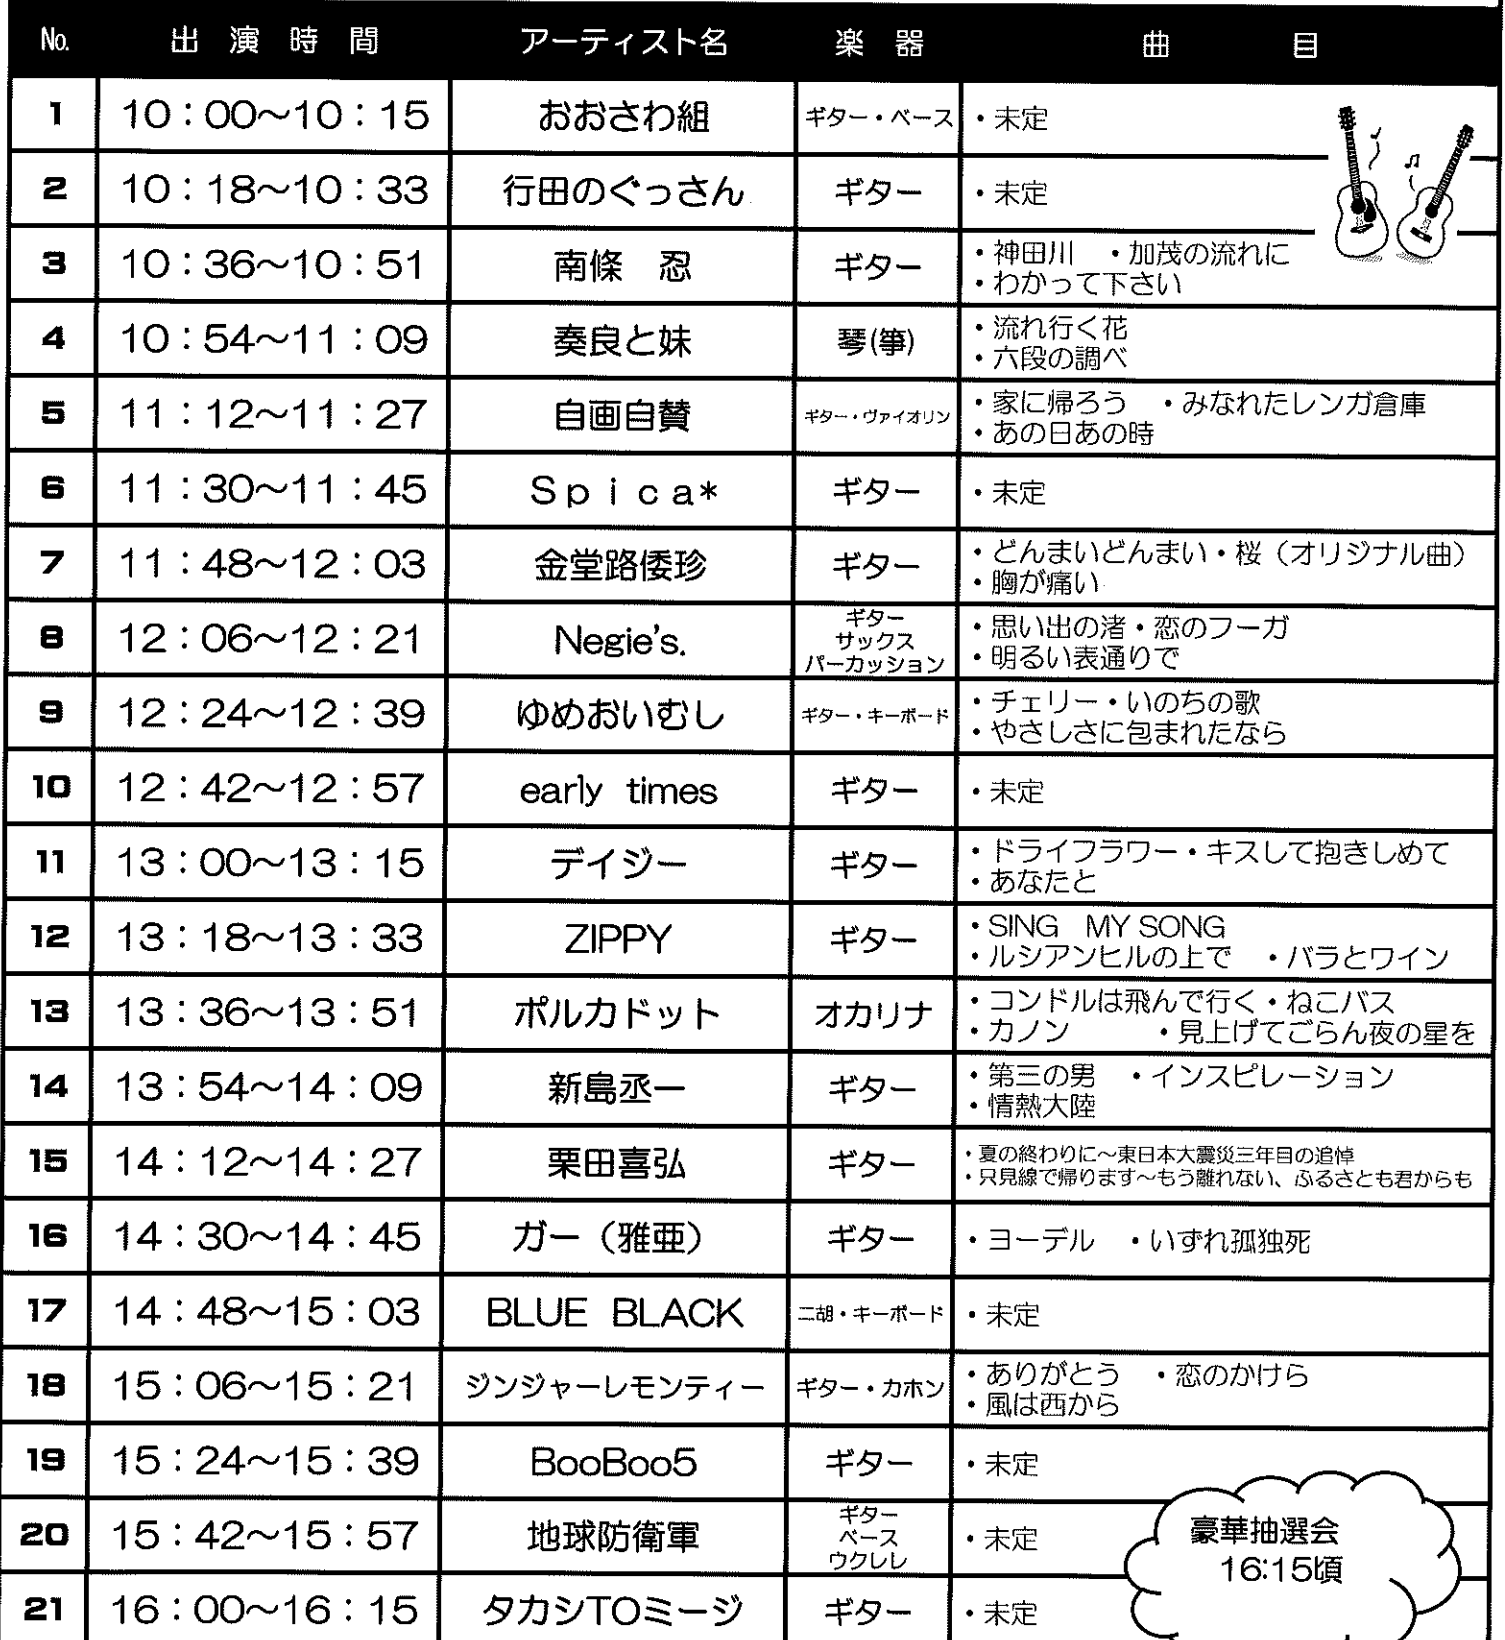 No. 出演時間 アーティスト名 楽器 曲目
1 10：00～10：15 おおさわ組 ギター・ベース ・未定
2 10：18～10：33 行田のぐっさん ギター ・未定
3 10：36～10：51 南條　忍 ギター ・神田川　・加茂の流れに
・わかって下さい
4 10：54～11：09 奏良と妹 琴(箏) ・流れ行く花
・六段の調べ
5 11：12～11：27 自画自賛 ギター・ヴァイオリン ・家に帰ろう　・みなれたレンガ倉庫
・あの日あの時
6 11：30～11：45 Spica* ギター ・未定
7 11：48～12：03 金堂路倭珍 ギター ・どんまいどんまい・桜（オリジナル曲）
・胸が痛い
8 12：06～12：21 Negie's. ギター
サックス
パーカッション
・思い出の渚・恋のフーガ
・明るい表通りで
9 12：24～12：39 ゆめおいむし ギター・キーボード ・チェリー・いのちの歌
・やさしさに包まれたなら
10 12：42～12：57 early times ギター ・未定
11 13：00～13：15 デイジー ギター ・ドライフラワー・キスして抱きしめて
・あなたと
12 13：18～13：33 ZIPPY ギター ・SING MY SONG
・ルシアンヒルの上で　・バラとワイン
13 13：36～13：51 ポルカドット オカリナ ・コンドルは飛んで行く・ねこバス
・カノン　・見上げてごらん夜の星を
14 13：54～14：09 新島丞一 ギター ・第三の男　・インスピレーション
・情熱大陸
15 14：12～14：27 栗田喜弘 ギター ・夏の終わりに～東日本大震災三年目の追悼
・只見線で帰ります～もう離れない、ふるさとも君からも
16 14：30～14：45 ガー（雅亜） ギター ・ヨーデル　・いずれ孤独死
17 14：48～15：03 BLUE BLACK 二胡・キーボード ・未定
18 15：06～15：21 ジンジャーレモンティー ギター・カホン ・ありがとう　・恋のかけら
・風は西から
19 15：24～15：39 BooBoo5 ギター ・未定
20 15：42～15：57 地球防衛軍 ギター
ベース
ウクレレ
・未定
21 16：00～16：15 タカシTOミージ ギター ・未定
豪華抽選会
16:15頃